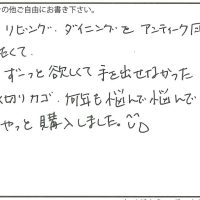 の他ご自由にお書き下さい。
リビング、ダイニングを アンティーク
たくて、
ずーっと欲しくて 手を出せなかった
水切りカゴ、何年も悩んで悩んで
やっと購入しました。